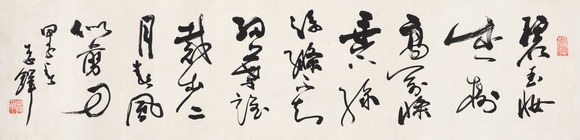 碧玉妝
成一樹
高萬條
垂下綠
絲絛不知
細葉誰
裁出二
月春風
似剪刀
甲子春